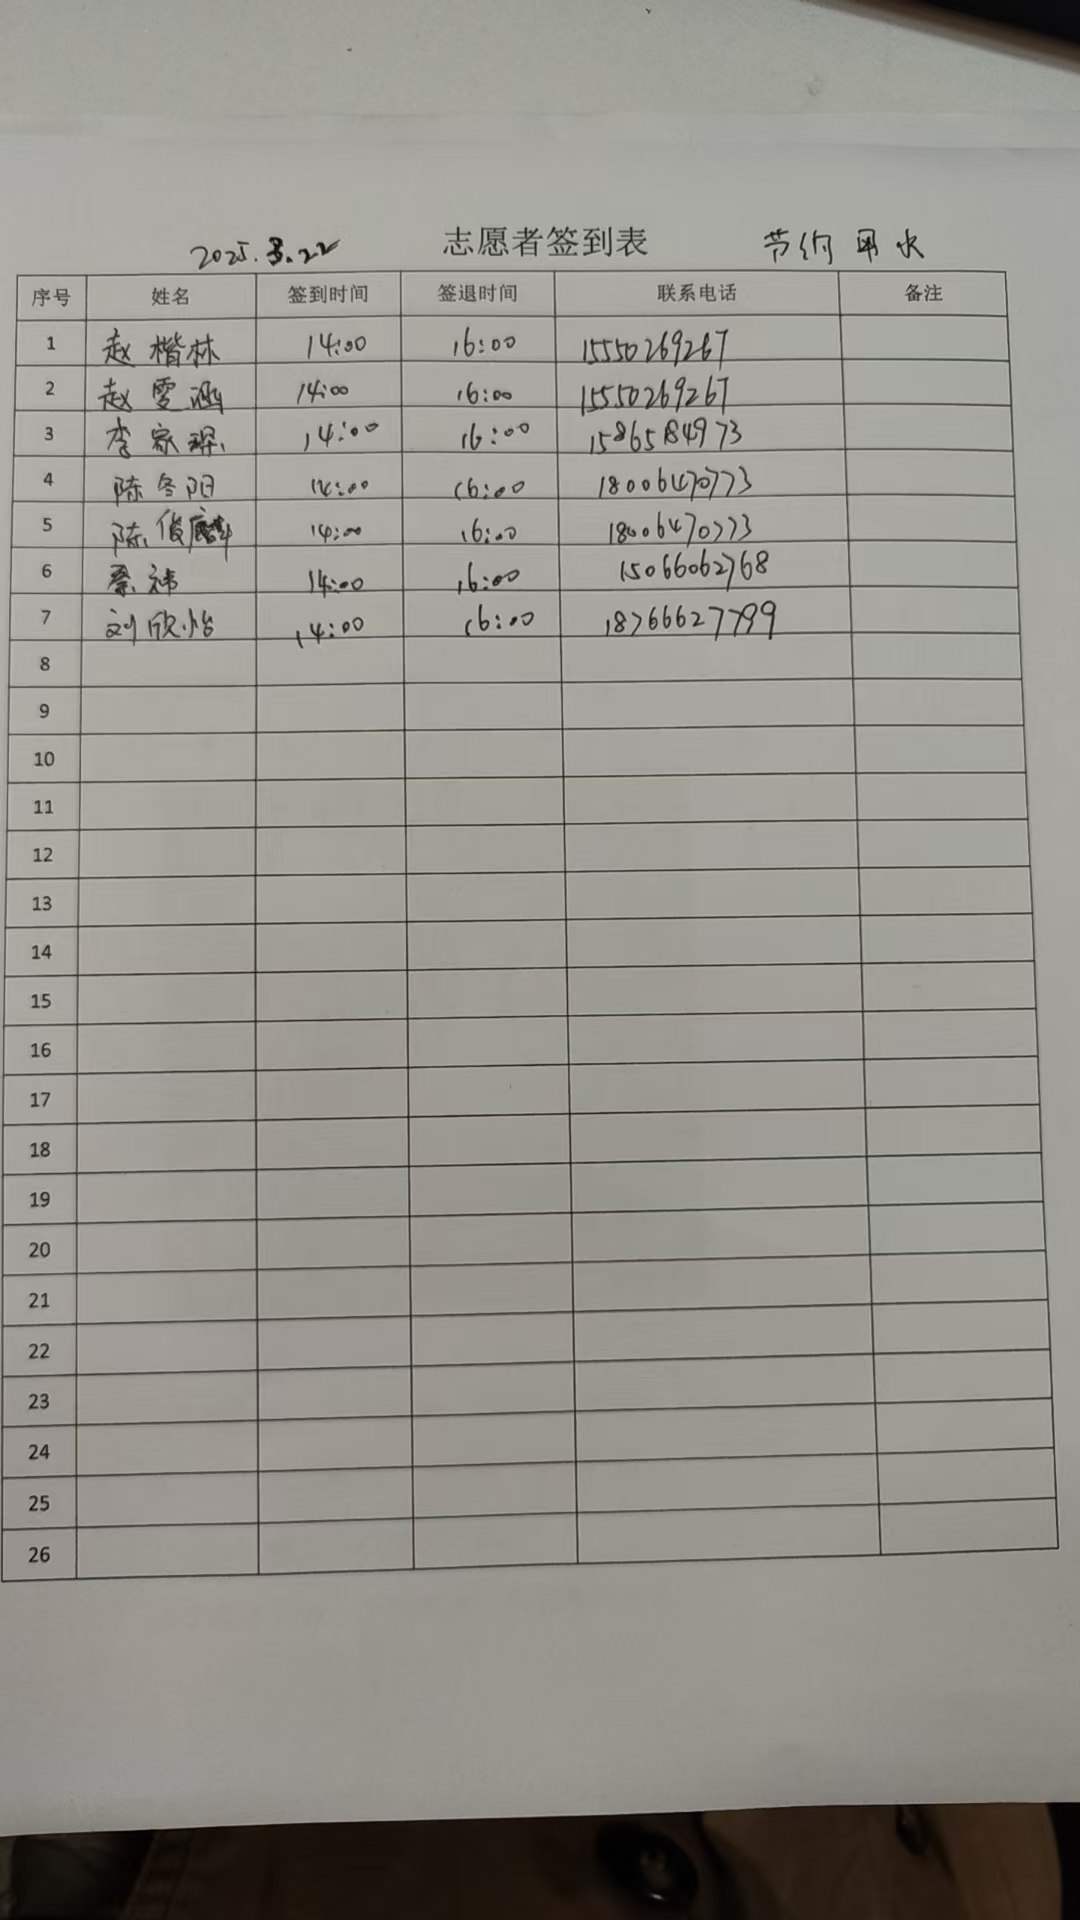 2025.3.22 志愿者签到表 节约用水
序号 姓名 签到时间 签退时间 联系电话 备注
1 赵楷林 14:00 16:00 15550269267
2 赵雯涵 14:00 16:00 15550269267
3 李家琛 14:00 16:00 15865184973
4 陈冬阳 14:00 16:00 18006470773
5 陈俊麟 14:00 16:00 18006470773
6 14:00 16:00 15066062768
7 刘欣怡 14:00 16:00 18766627799
8
9
10
11
12
13
14
15
16
17
18
19
20
21
22
23
24
25
26